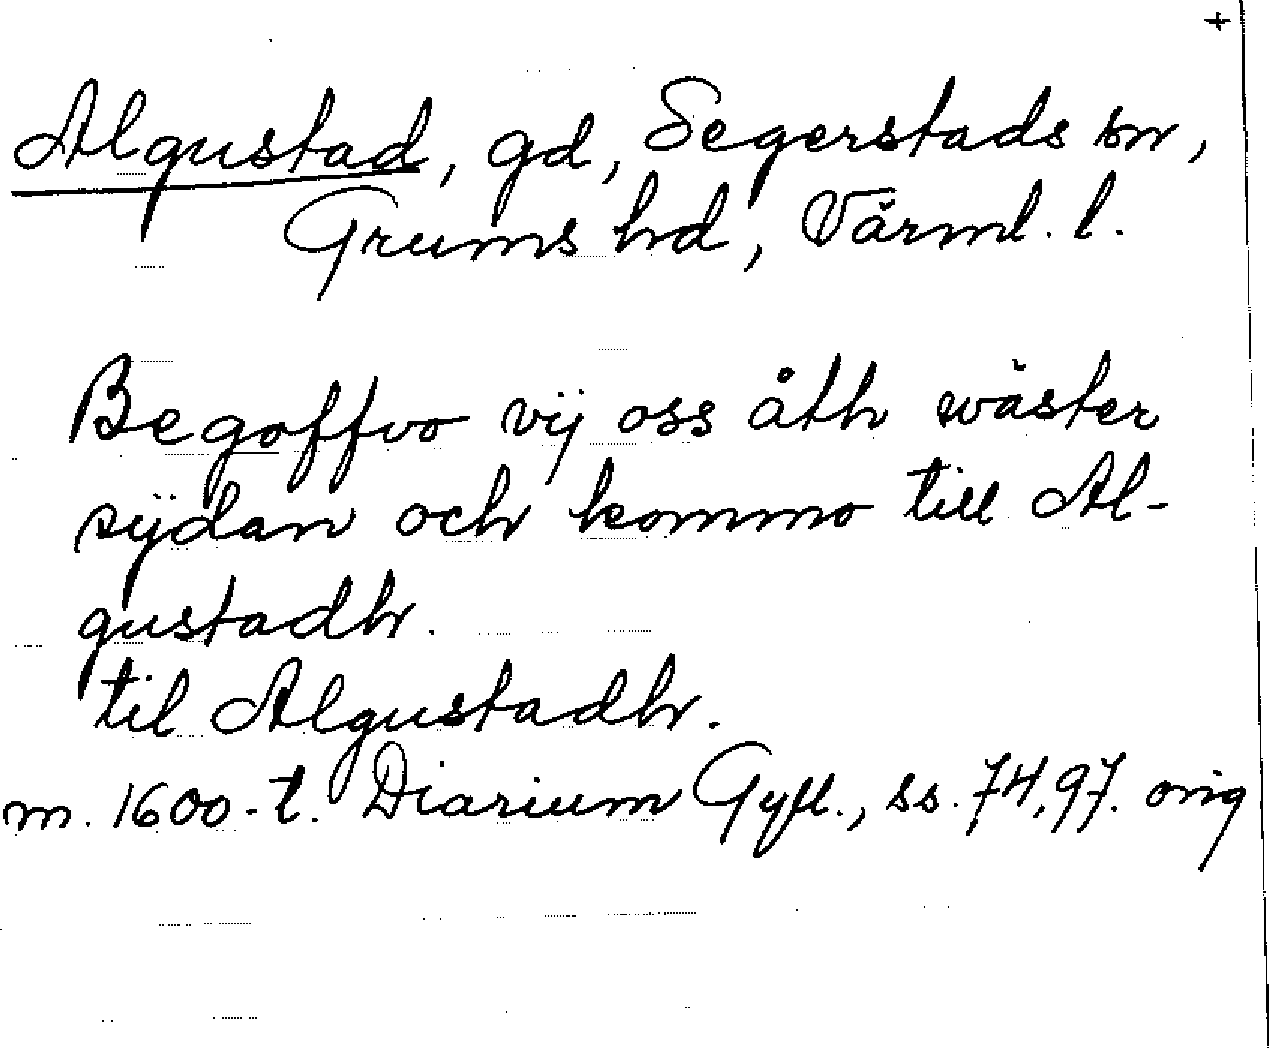 +
Algustad, gd, Segerstads sn,
Grums hd, Värml. l.
Begoffvo vij oss åth wäster
sÿdan och kommo till Al-
gustadh.
til Algustadh.
m. 1600-t. Diarium Gyll., ss. 74, 97. orig